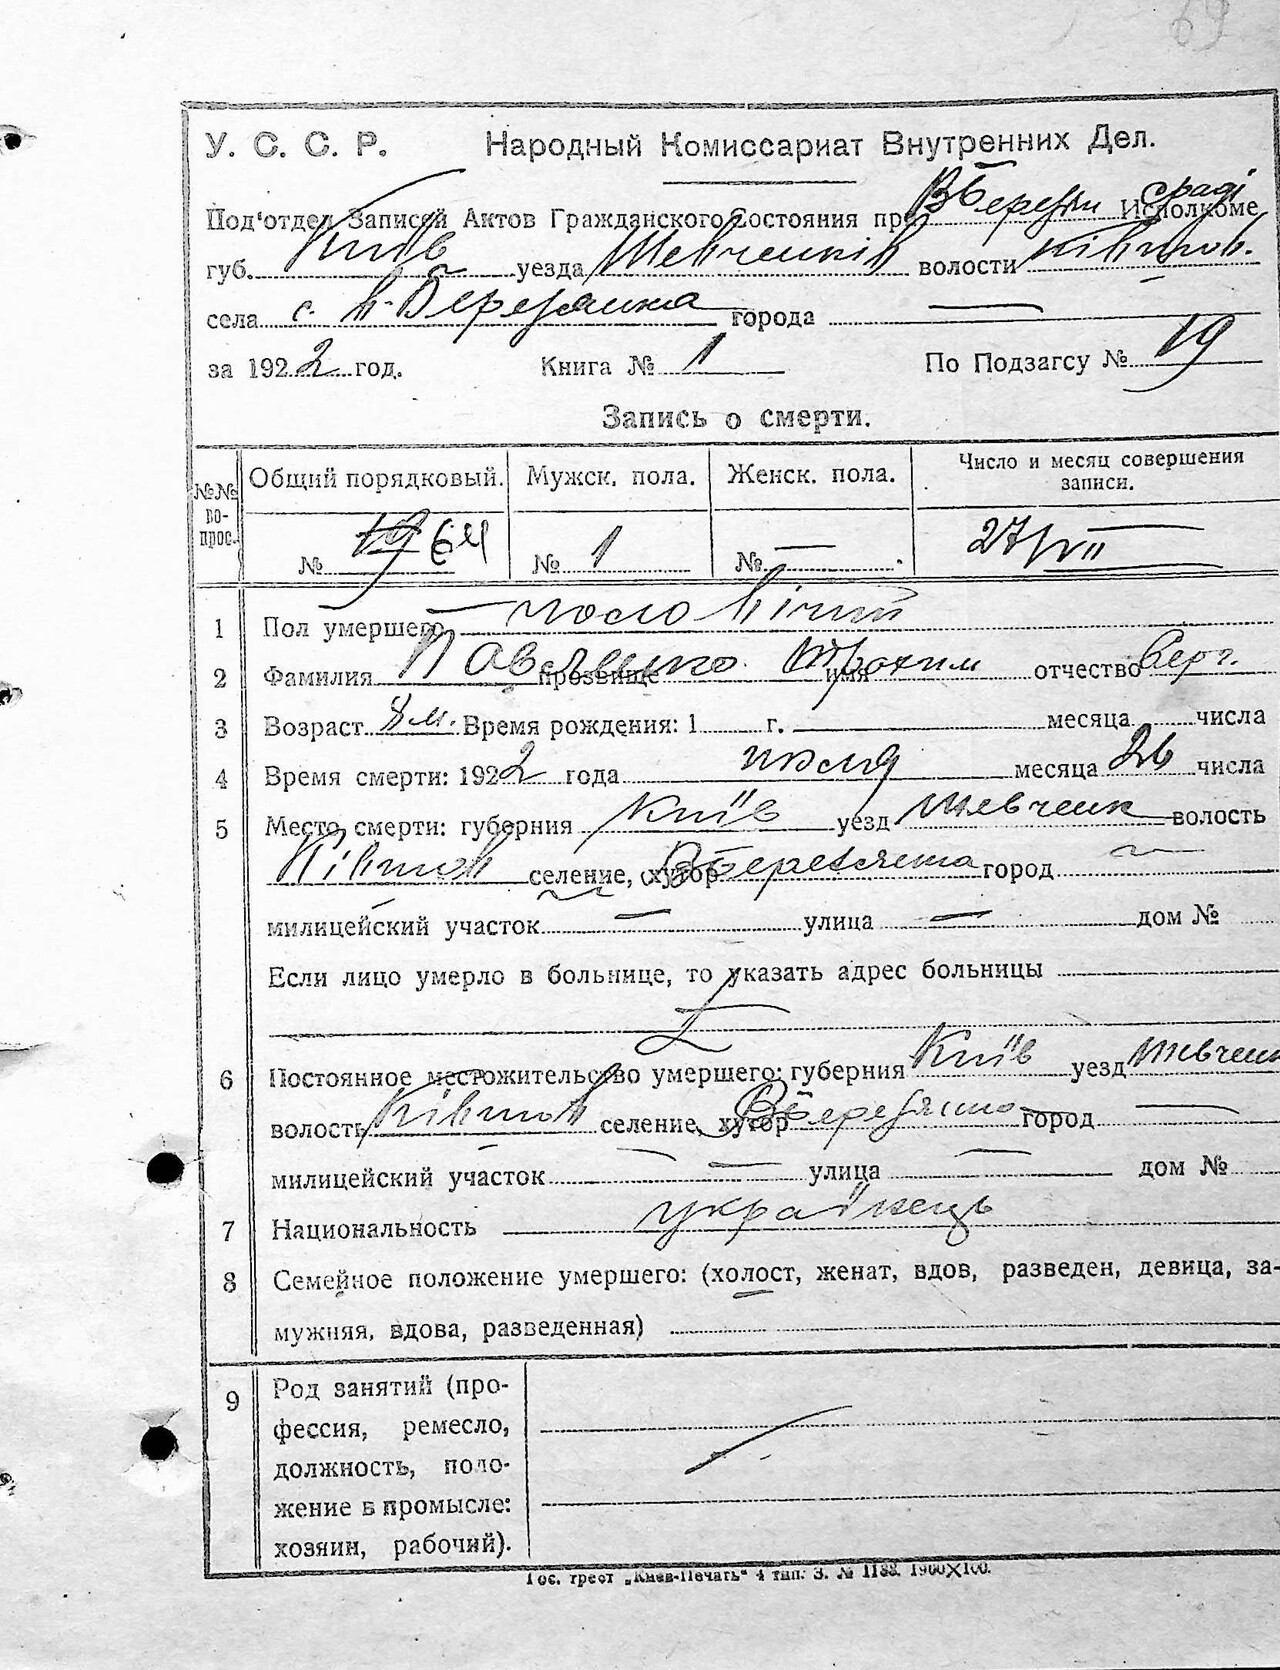 69
У. С. С. Р. Народный Комиссариат Внутренних Дел.
Под'отдел Записей Актов Гражданского Состояния при В Березян Сраді Исполкоме
губ. Київ уезда Шевченків волости Ківшов.
села с. В-Березянка города —
за 1922 год. Книга № 1 По Подзагсу № 19
Запись о смерти.
№№ вопрос. Общий порядковый. Мужск. пола. Женск. пола. Число и месяц совершения записи.
№ 19 64 № 1 № — 27/VII
1 Пол умершего чоловічий
2 Фамилия прозвище имя Трохим отчество Серг.
3 Возраст 8 м. Время рождения: 1 г. месяца числа
4 Время смерти: 1922 года июля месяца 26 числа
5 Место смерти: губерния Київ уезд Шевченк волость
Ківшов селение, хутор В Березянка город —
милицейский участок — улица — дом №
Если лицо умерло в больнице, то указать адрес больницы
6 Постоянное местожительство умершего: губерния Київ уезд Шевченк
волость Ківшов селение, хутор В Березянка город —
милицейский участок — улица — дом №
7 Национальность українець
8 Семейное положение умершего: (холост, женат, вдов, разведен, девица, за-
мужняя, вдова, разведенная)
9 Род занятий (про-
фессия, ремесло,
должность, поло-
жение в промысле:
хозяин, рабочий).
Гос. трест „Киев-Печать" 4 тип. З. № 1188. 1900×100.